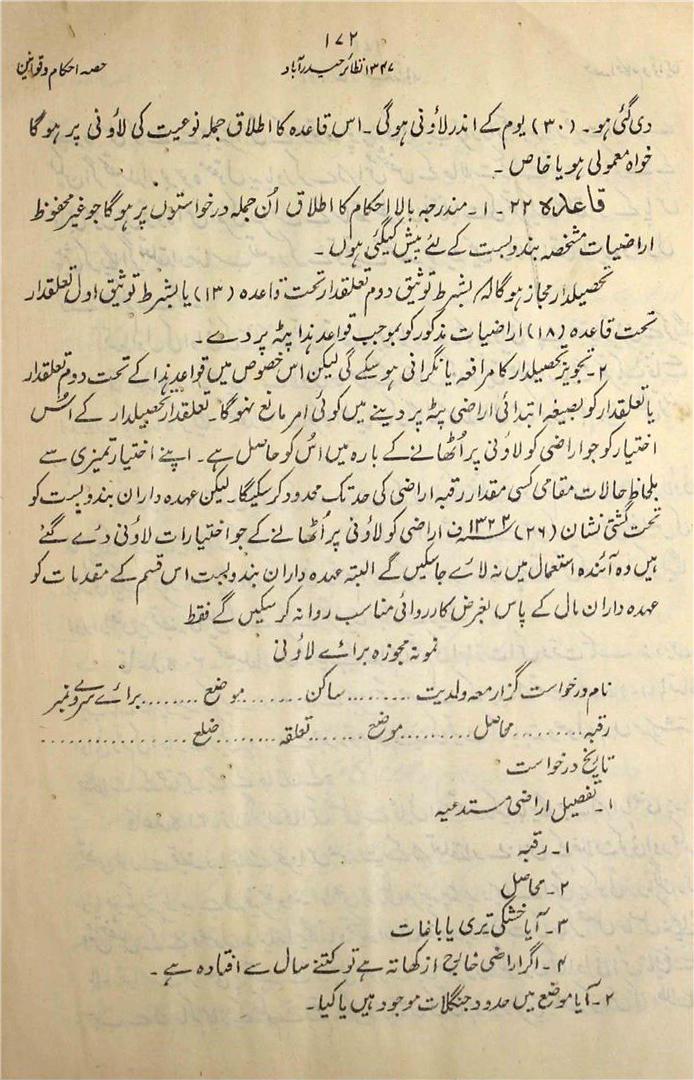 ۱۷۲
۱۳۴۷ نظائر حیدرآباد
حصہ احکام و قوانین
دی گئی ہو۔ (۳۰) یوم کے اندر لاؤنی ہوگی۔ اس قاعدہ کا اطلاق جملہ نوعیت کی لاؤنی پر ہوگا
خواہ معمولی ہو یا خاص۔
قاعدہ ۲۲۔ ۱۔ مندرجہ بالا احکام کا اطلاق اُن جملہ درخواستوں پر ہوگا جو غیر محفوظ
اراضیات مشخصہ بندوبست کے لئے پیش کیگئی ہوں۔
تحصیلدار مجاز ہوگا کہ بشرط توثیق دوم تعلقدار تحت قاعدہ (۱۳) یا بشرط توثیق اول تعلقدار
تحت قاعدہ (۱۸) اراضیات مذکور کو بموجب قواعد ہذا پٹہ پر دے۔
۲۔ تجویز تحصیلدار کا مرافعہ یا نگرانی ہو سکے گی لیکن اس خصوص میں قواعد ہذا کے تحت دوم تعلقدار
یا تعلقدار کو بصیغہ ابتدائی اراضی پٹہ پر دینے میں کوئی امر مانع نہوگا۔ تعلقدار تحصیلدار کے اُس
اختیار کو جو اراضی کو لاؤنی پر اُٹھانے کے بارہ میں اسُ کو حاصل ہے۔ اپنے اختیار تمیزی سے
بلحاظ حالات مقامی کسی مقدار رقبہ اراضی کی حد تک محدود کر سکیگا۔ لیکن عہدہ داران بندوبست کو
تحت گشتی نشان (۲۶) ۱۳۲۲ ف اراضی کو لاؤنی پر اُٹھانے کے جو اختیارات لاؤنی دئے گئے
ہیں وہ آئندہ استعمال میں نہ لائے جاسکیں گے البتہ عہدہ داران بندوبست اس قسم کے مقدمات کو
عہدہ داران مال کے پاس بغرض کارروائی مناسب روانہ کر سکیں گے فقط
نمونہ مجوزہ برائے لاؤنی
نام درخواست گزار معہ ولدیت ......... ساکن ....... موضع ........ برائے سروے نمبر
رقبہ ......... محاصل ......... موضع ....... تعلقہ ........ ضلع ...............
تاریخ درخواست
۱۔ تفصیل اراضی مستدعیہ
۱۔ رقبہ
۲۔ محاصل
۳۔ آیا خشکی تری یا باغات
۴۔ اگر اراضی خارج از کھاتہ ہے تو کتنے سال سے افتادہ ہے۔
۲۔ آیا موضع میں حدود جنگلات موجود ہیں یا کیا۔